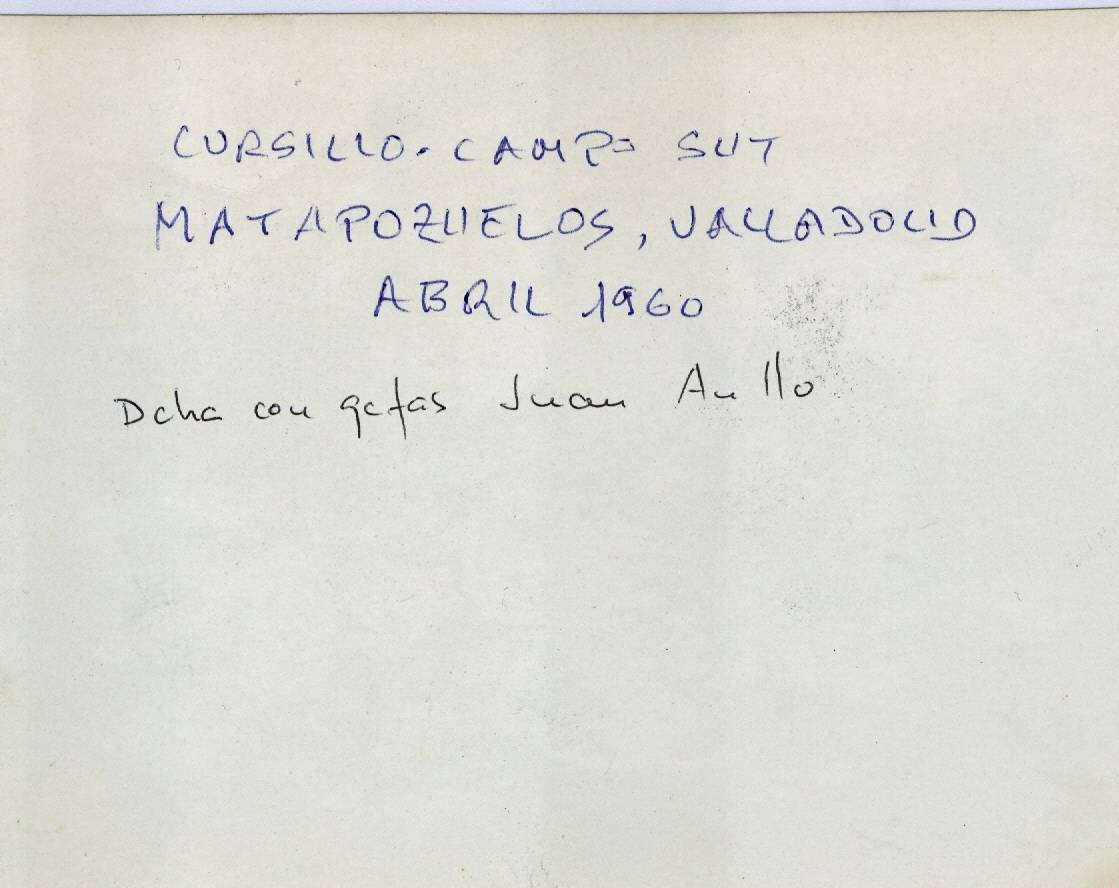 CURSILLO. CAMPO SUT
MATAPOZUELOS, VALLADOLID
ABRIL 1960
Dcha con gafas Juan Anllo